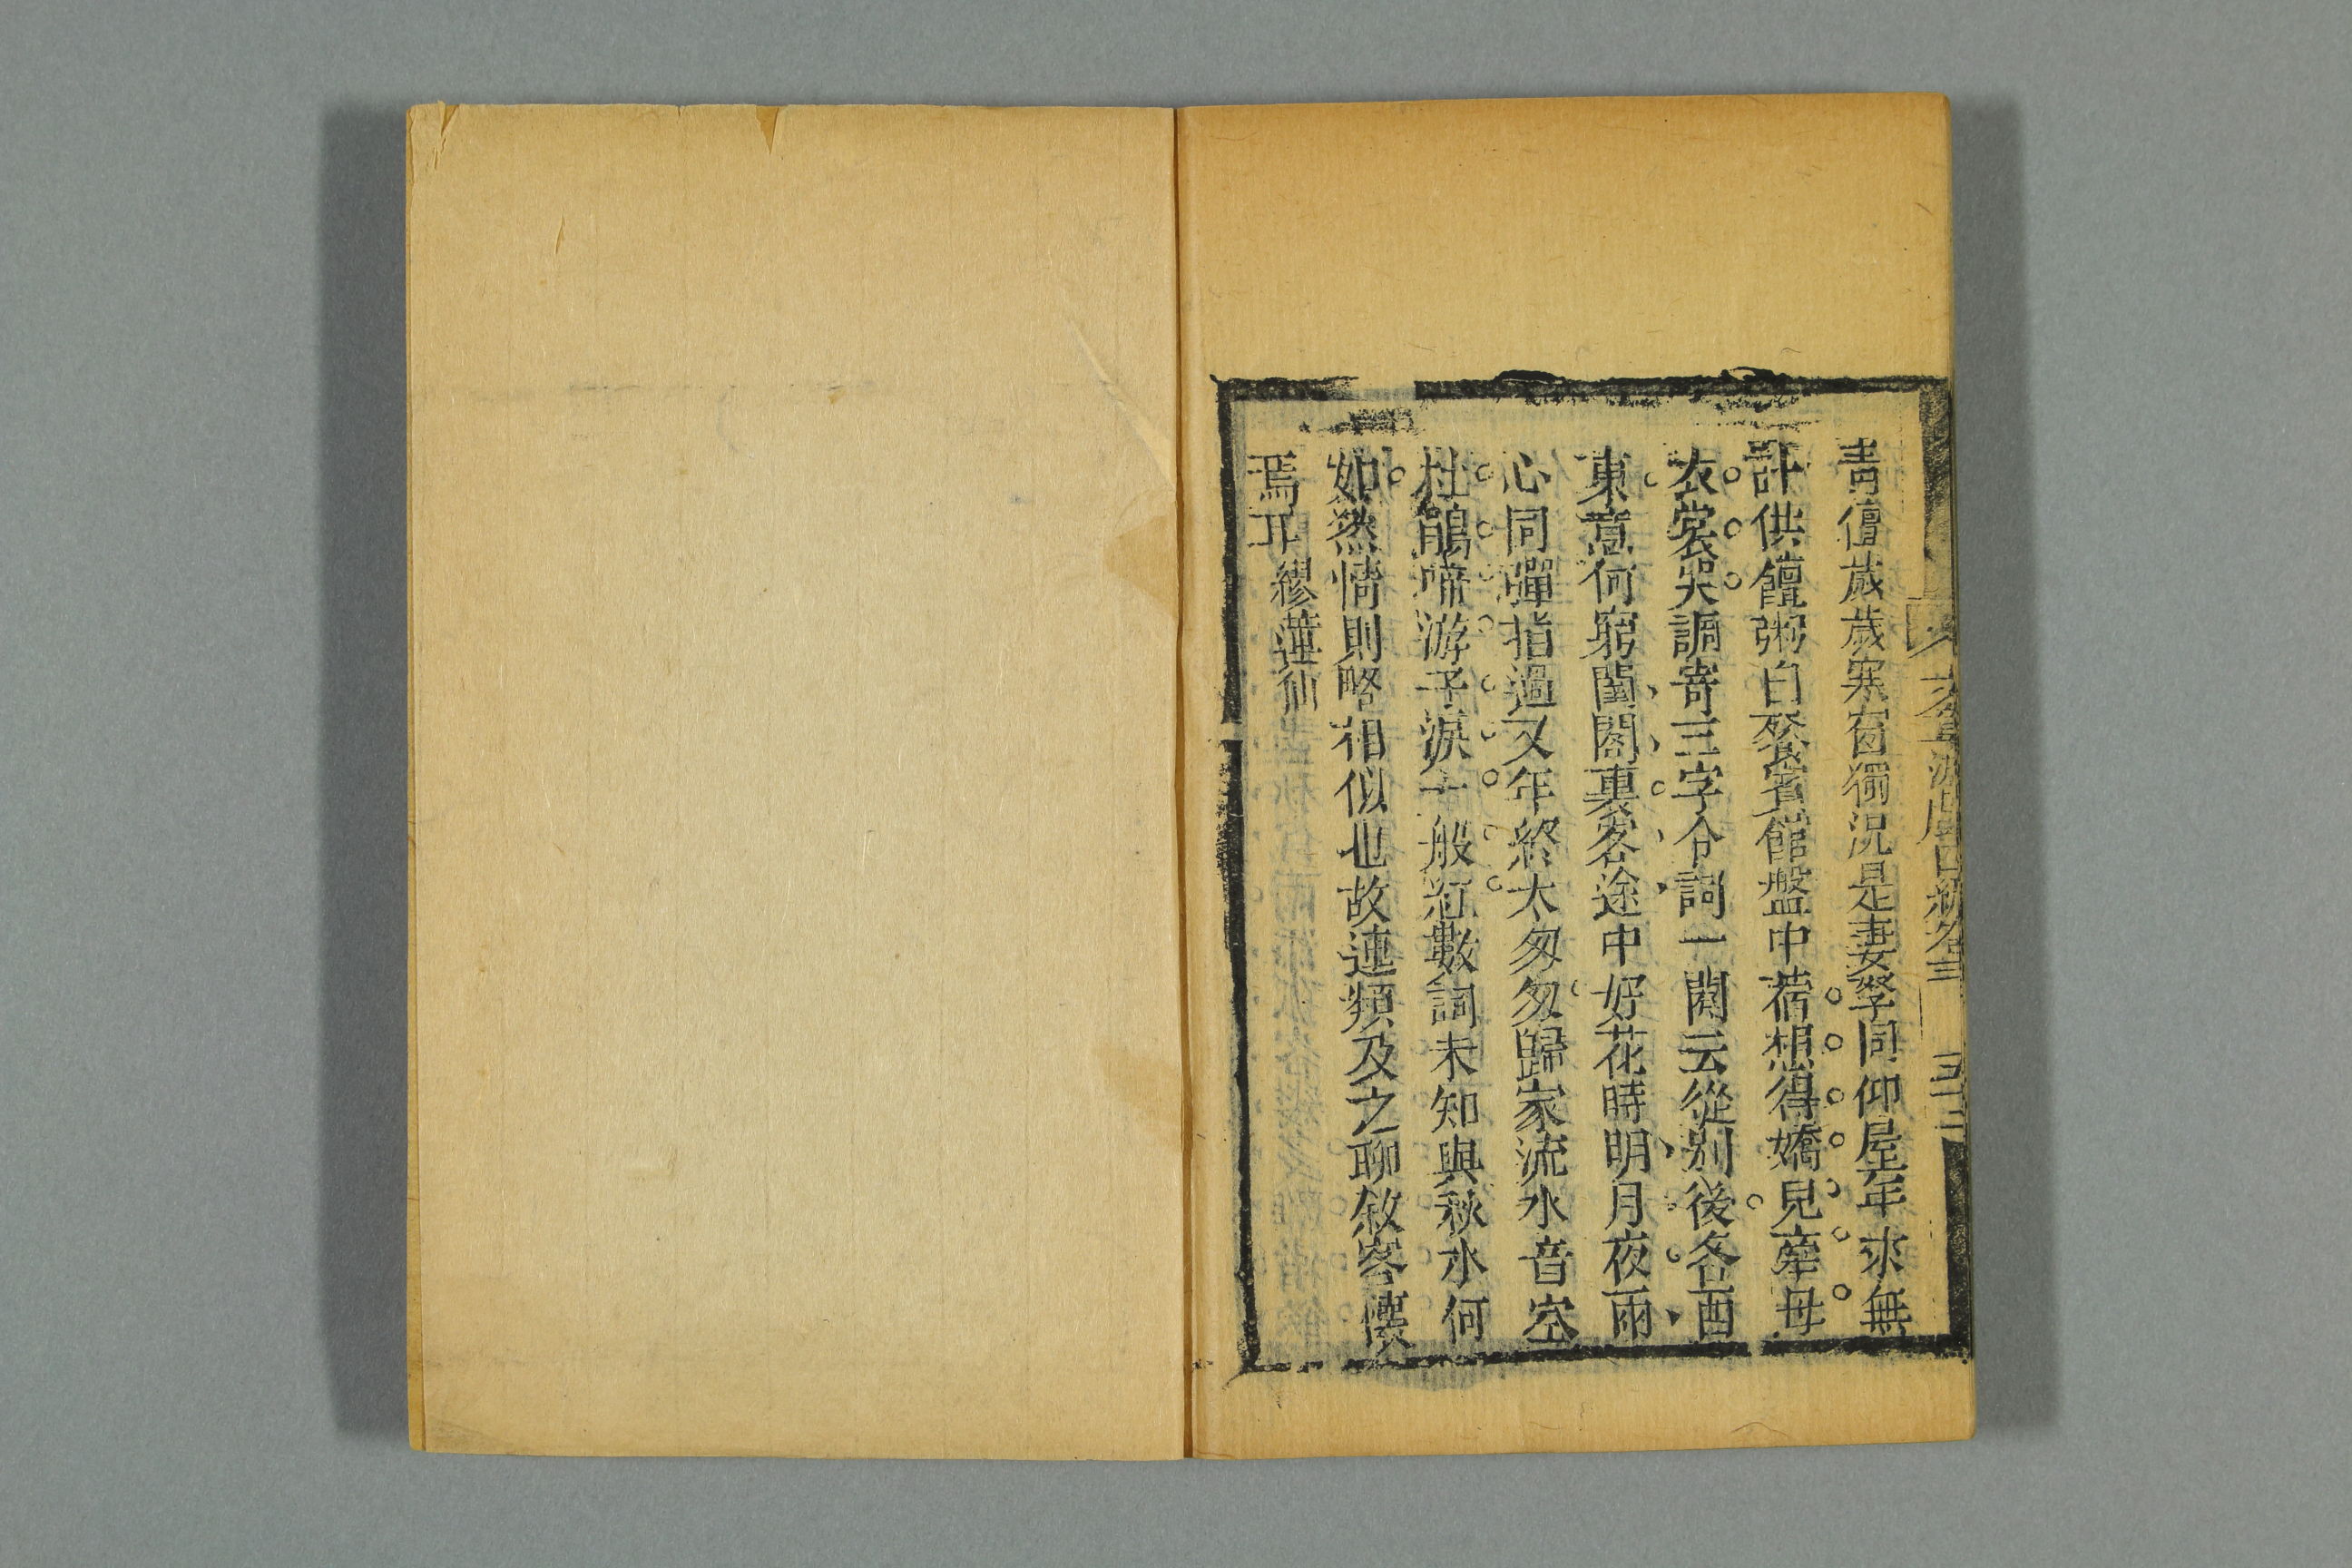 青僮歲歲寒窗獨况是妻孥同仰屋年來無
計供饘粥白餐賓館盤中蓿想得嬌兒牽母
衣裳哭調寄三字令詞一闋云從别後各酉
東意何窮閨閣裏客途中好花時明月夜雨
心同彈指過又年終太匆匆歸家流水音空
杜鵑啼游子淚一般紅數詞未知與秋水何
如然情則略相似也故連類及之聊敘客懷
焉耳繆蓮仙
文章游戲四編卷三